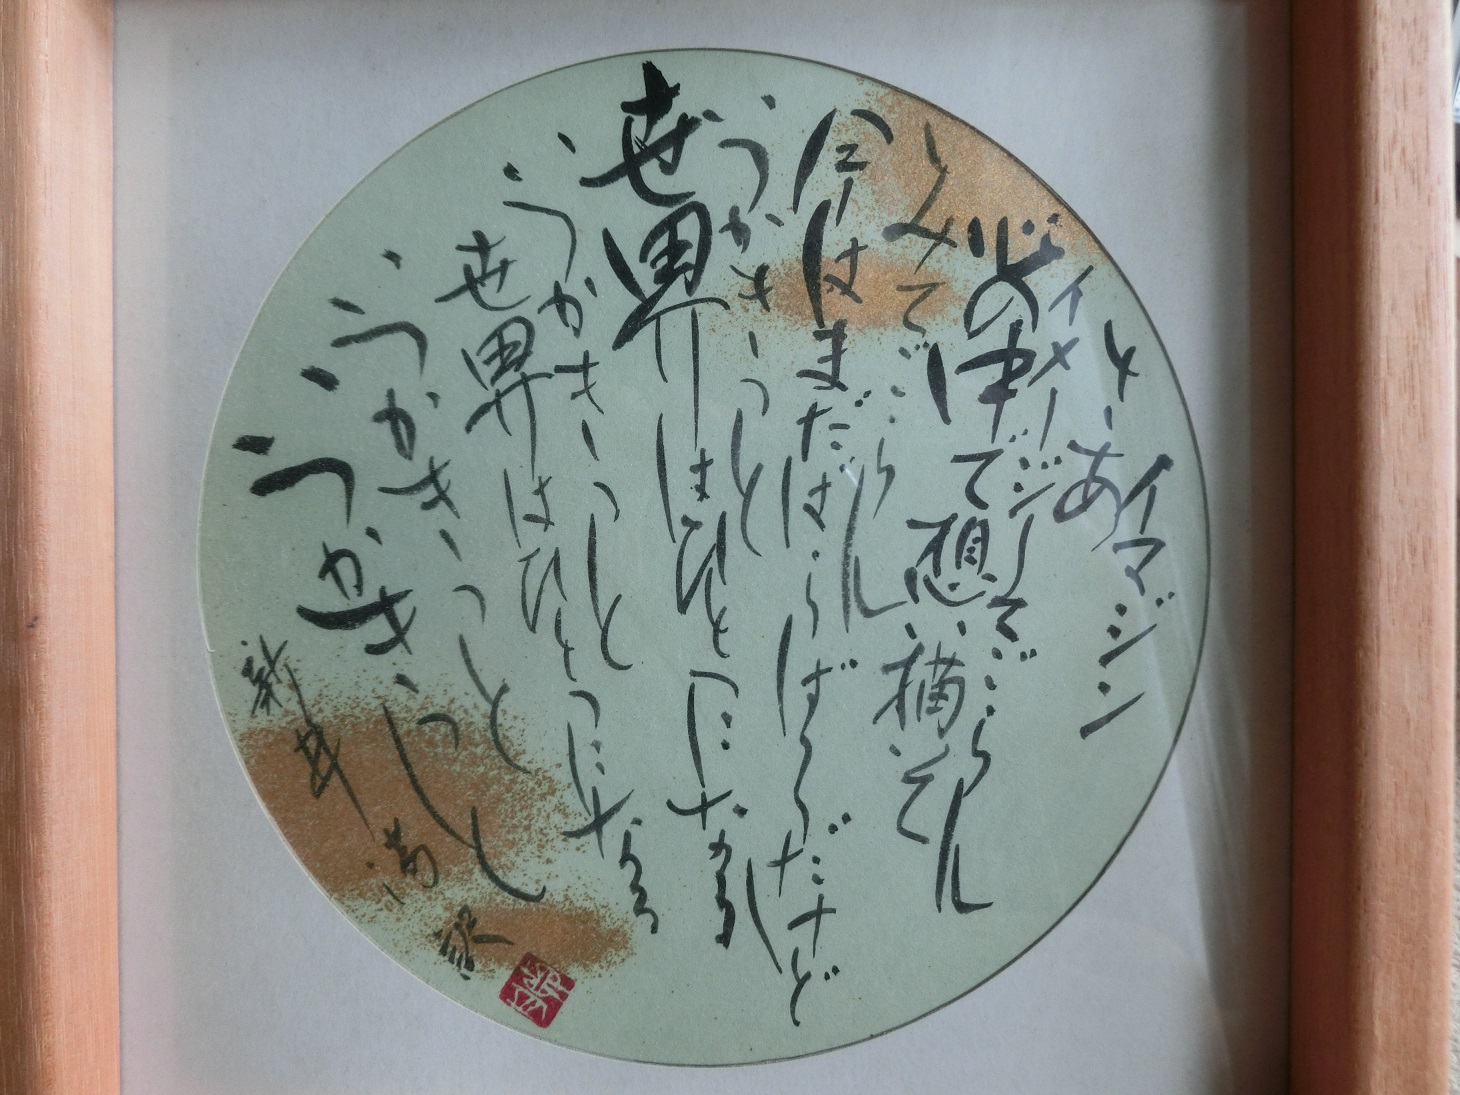 イマジン
さあ
イメージしてごらん
心の中で想い描いて
みてごらん
今はまだばらばらだけど
いつかきっと
世界はひとつになる
いつかきっと
世界はひとつになる
いつかきっと
いつかきっと
新井満 訳